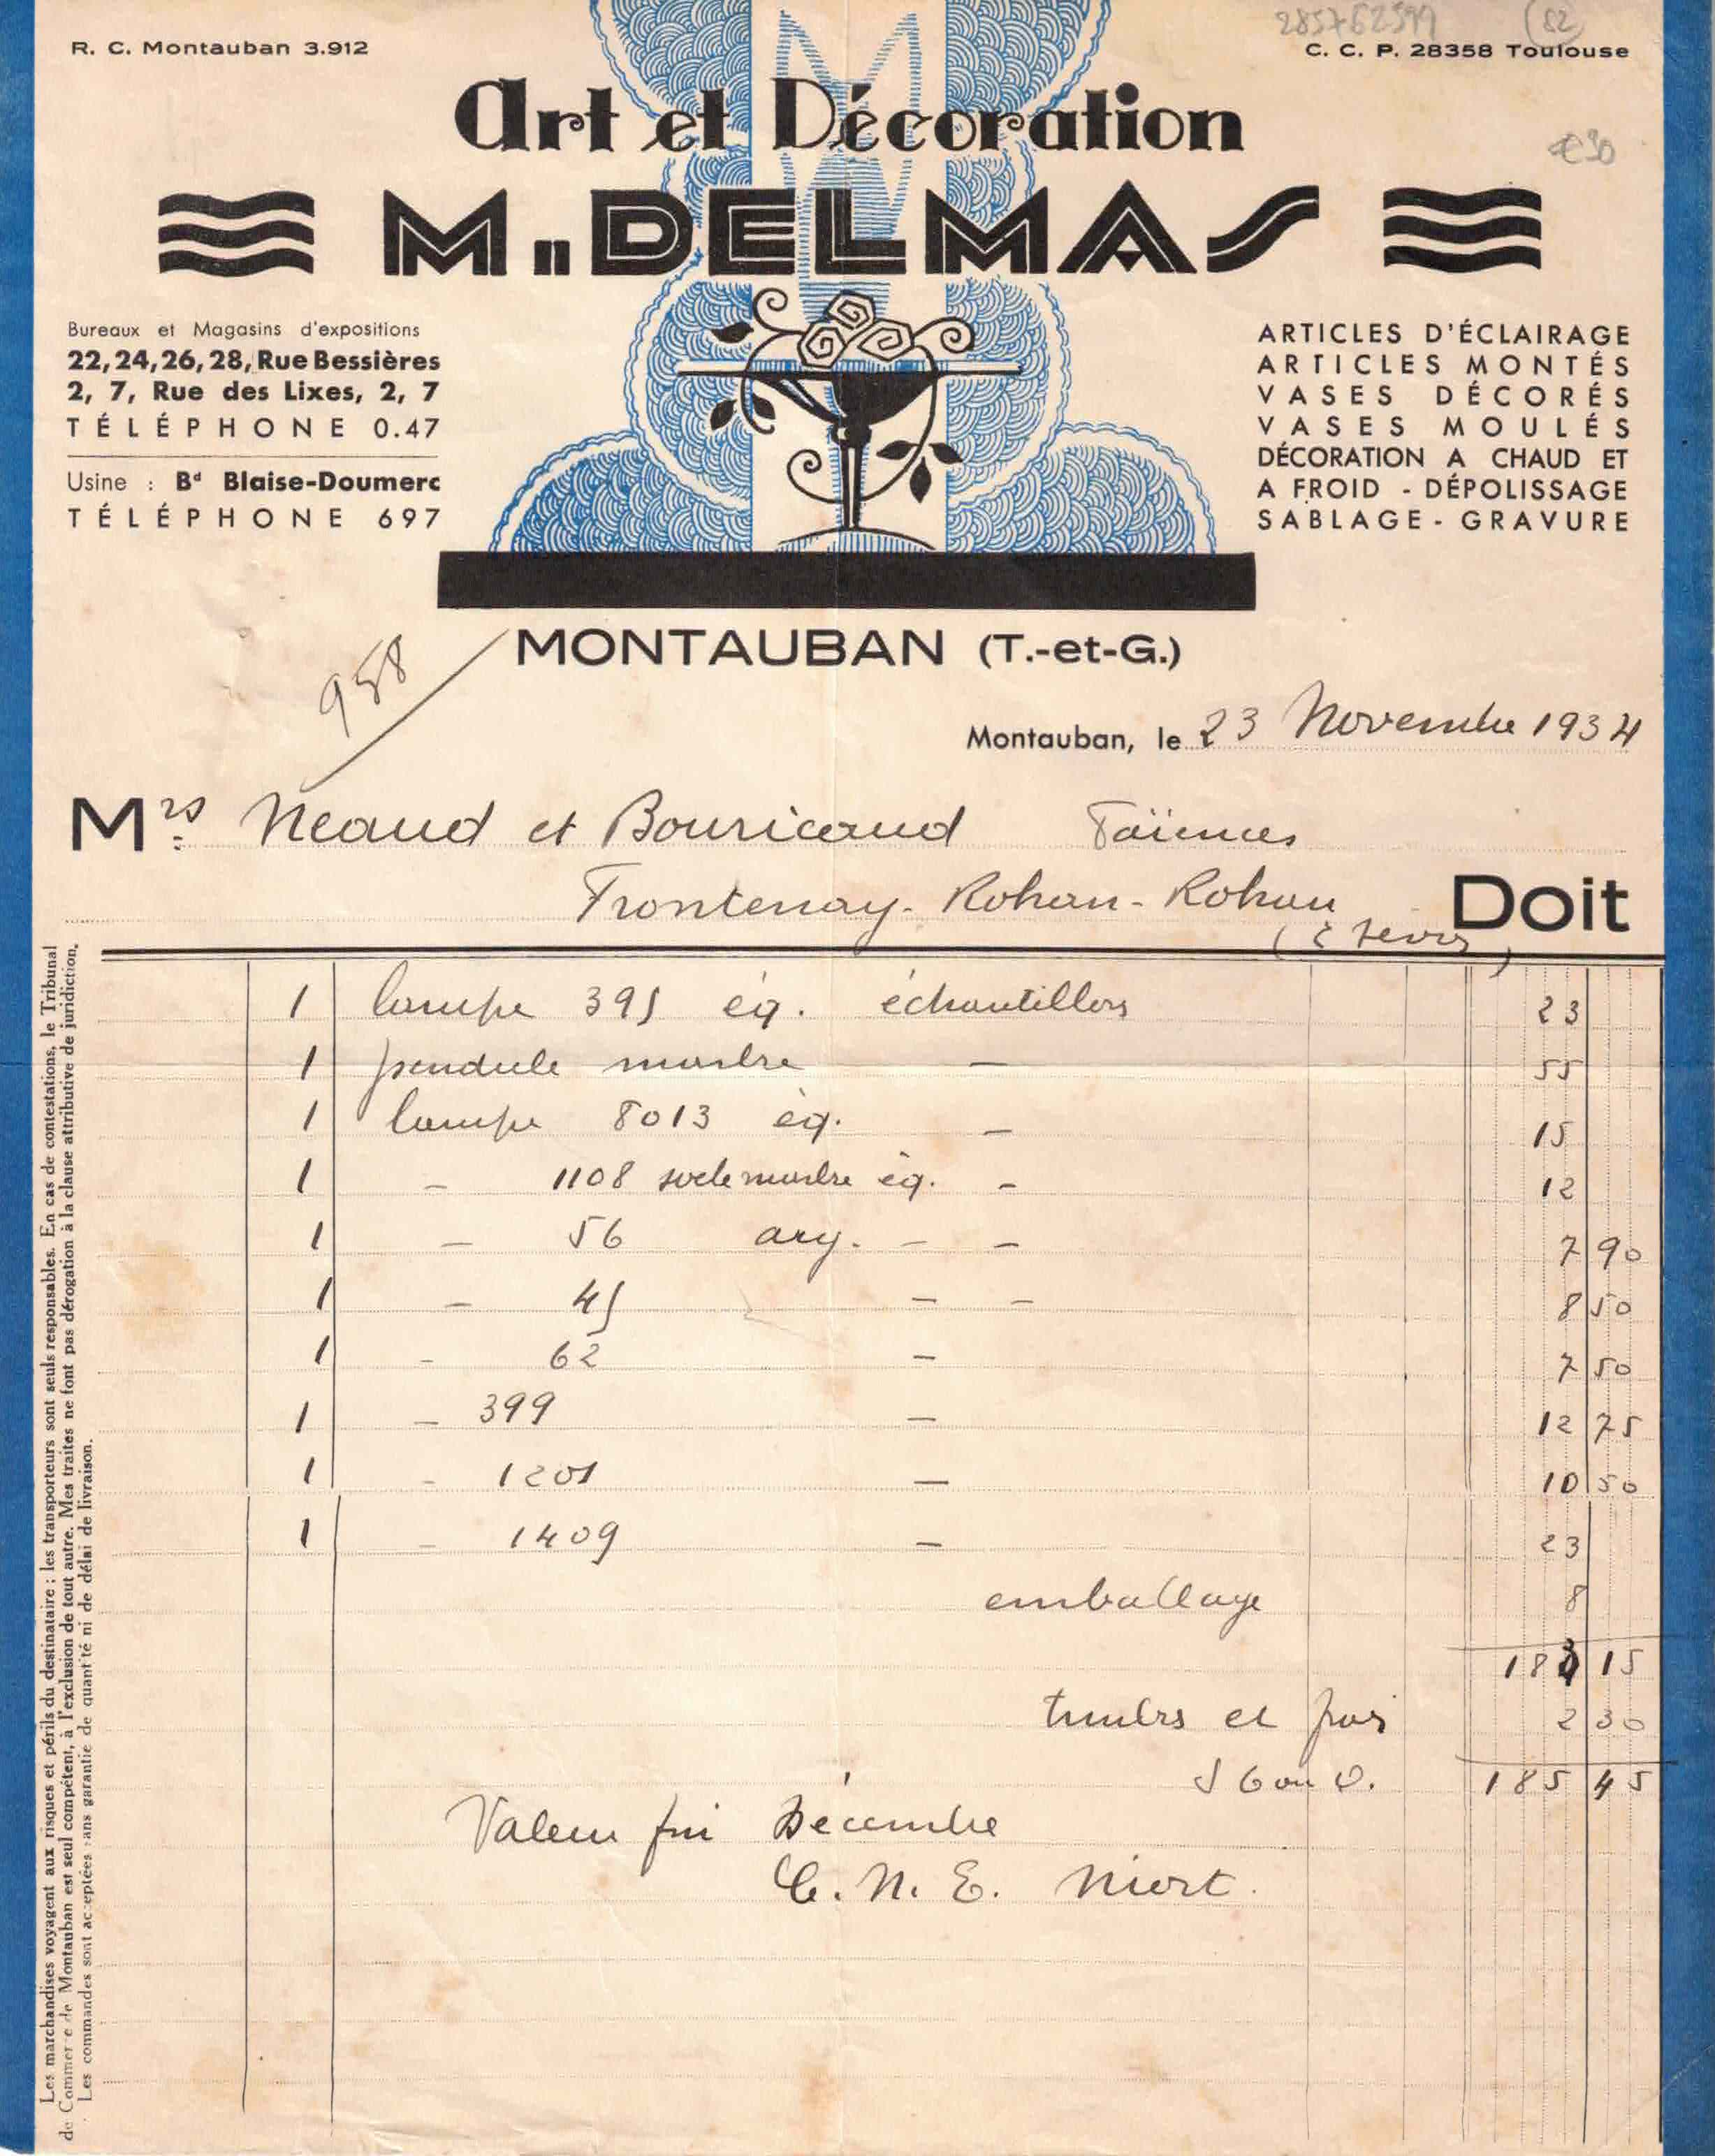 285762599 (82)
R. C. Montauban 3.912
C. C. P. 28358 Toulouse
Art et Décoration
€30
M. DELMAS
Bureaux et Magasins d'expositions
22, 24, 26, 28, Rue Bessières
2, 7, Rue des Lixes, 2, 7
TÉLÉPHONE 0.47
Usine : Bd Blaise-Doumerc
TÉLÉPHONE 697
ARTICLES D'ÉCLAIRAGE
ARTICLES MONTÉS
VASES DÉCORÉS
VASES MOULÉS
DÉCORATION A CHAUD ET
A FROID - DÉPOLISSAGE
SABLAGE - GRAVURE
MONTAUBAN (T.-et-G.)
958
Montauban, le 23 Novembre 1934
Mrs Neaud et Bouricaud Faïences
Frontenay-Rohan-Rohan Doit
(2 Sevres)
1 lampe 395 éq. échantillons 23
1 pendule marbre — 55
1 lampe 8013 éq. — 15
1 — 1108 socle marbre éq. — 12
1 — 56 arg. — — 7 90
1 — 45 — — 8 50
1 — 62 — 7 50
1 — 399 — 12 75
1 — 1201 — 10 50
1 — 1409 — 23
emballage 8
183 15
timbrs et frais 2 30
185 45
Valeur fin Décembre
C. N. E. Niort.
Les marchandises voyagent aux risques et périls du destinataire ; les transporteurs sont seuls responsables. En cas de contestations, le Tribunal
de Commerce de Montauban est seul compétent, à l'exclusion de tout autre. Mes traites ne font pas dérogation à la clause attributive de juridiction.
Les commandes sont acceptées sans garantie de quantité ni de délai de livraison.